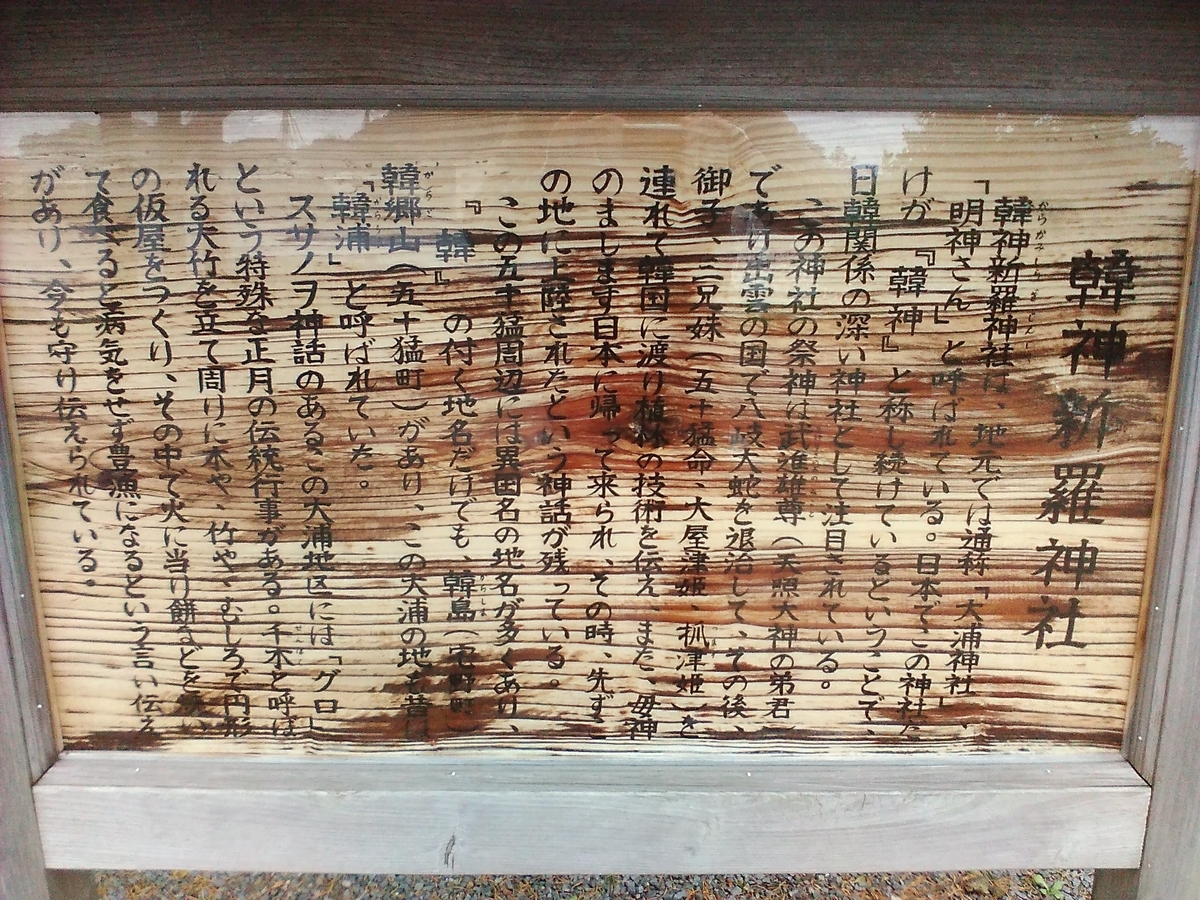 韓神新羅神社
韓神新羅神社は、地元では通称「大浦神社」、
「明神さん」と呼ばれている。日本でこの神社だ
けが『韓神』と称し続けているということで、
日韓関係の深い神社として注目されている。
この神社の祭神は武進雄尊(天照大神の弟君)
であり出雲の国で八岐大蛇を退治して、その後、
御子、三兄妹(五十猛命、大屋津姫、抓津姫)を
連れて韓国に渡り植林の技術を伝え、また、母神
のまします日本に帰って来られ、その時、先ずこ
の地に上陸されたという神話が残っている。
この五十猛周辺には異国名の地名が多くあり、
『韓』の付く地名だけでも、韓島(宅野町)
韓郷山(五十猛町)があり、この大浦の地も昔は
「韓浦」と呼ばれていた。
スサノヲ神話のあるこの大浦地区には「グロ」
という特殊な正月の伝統行事がある。千木と呼ば
れる大竹を立て周りに木や、竹や、むしろで円形
の仮屋をつくり、その中で火に当り餅などを
て食べると病気をせず豊漁になるという言い伝え
があり、今も守り伝えられている。